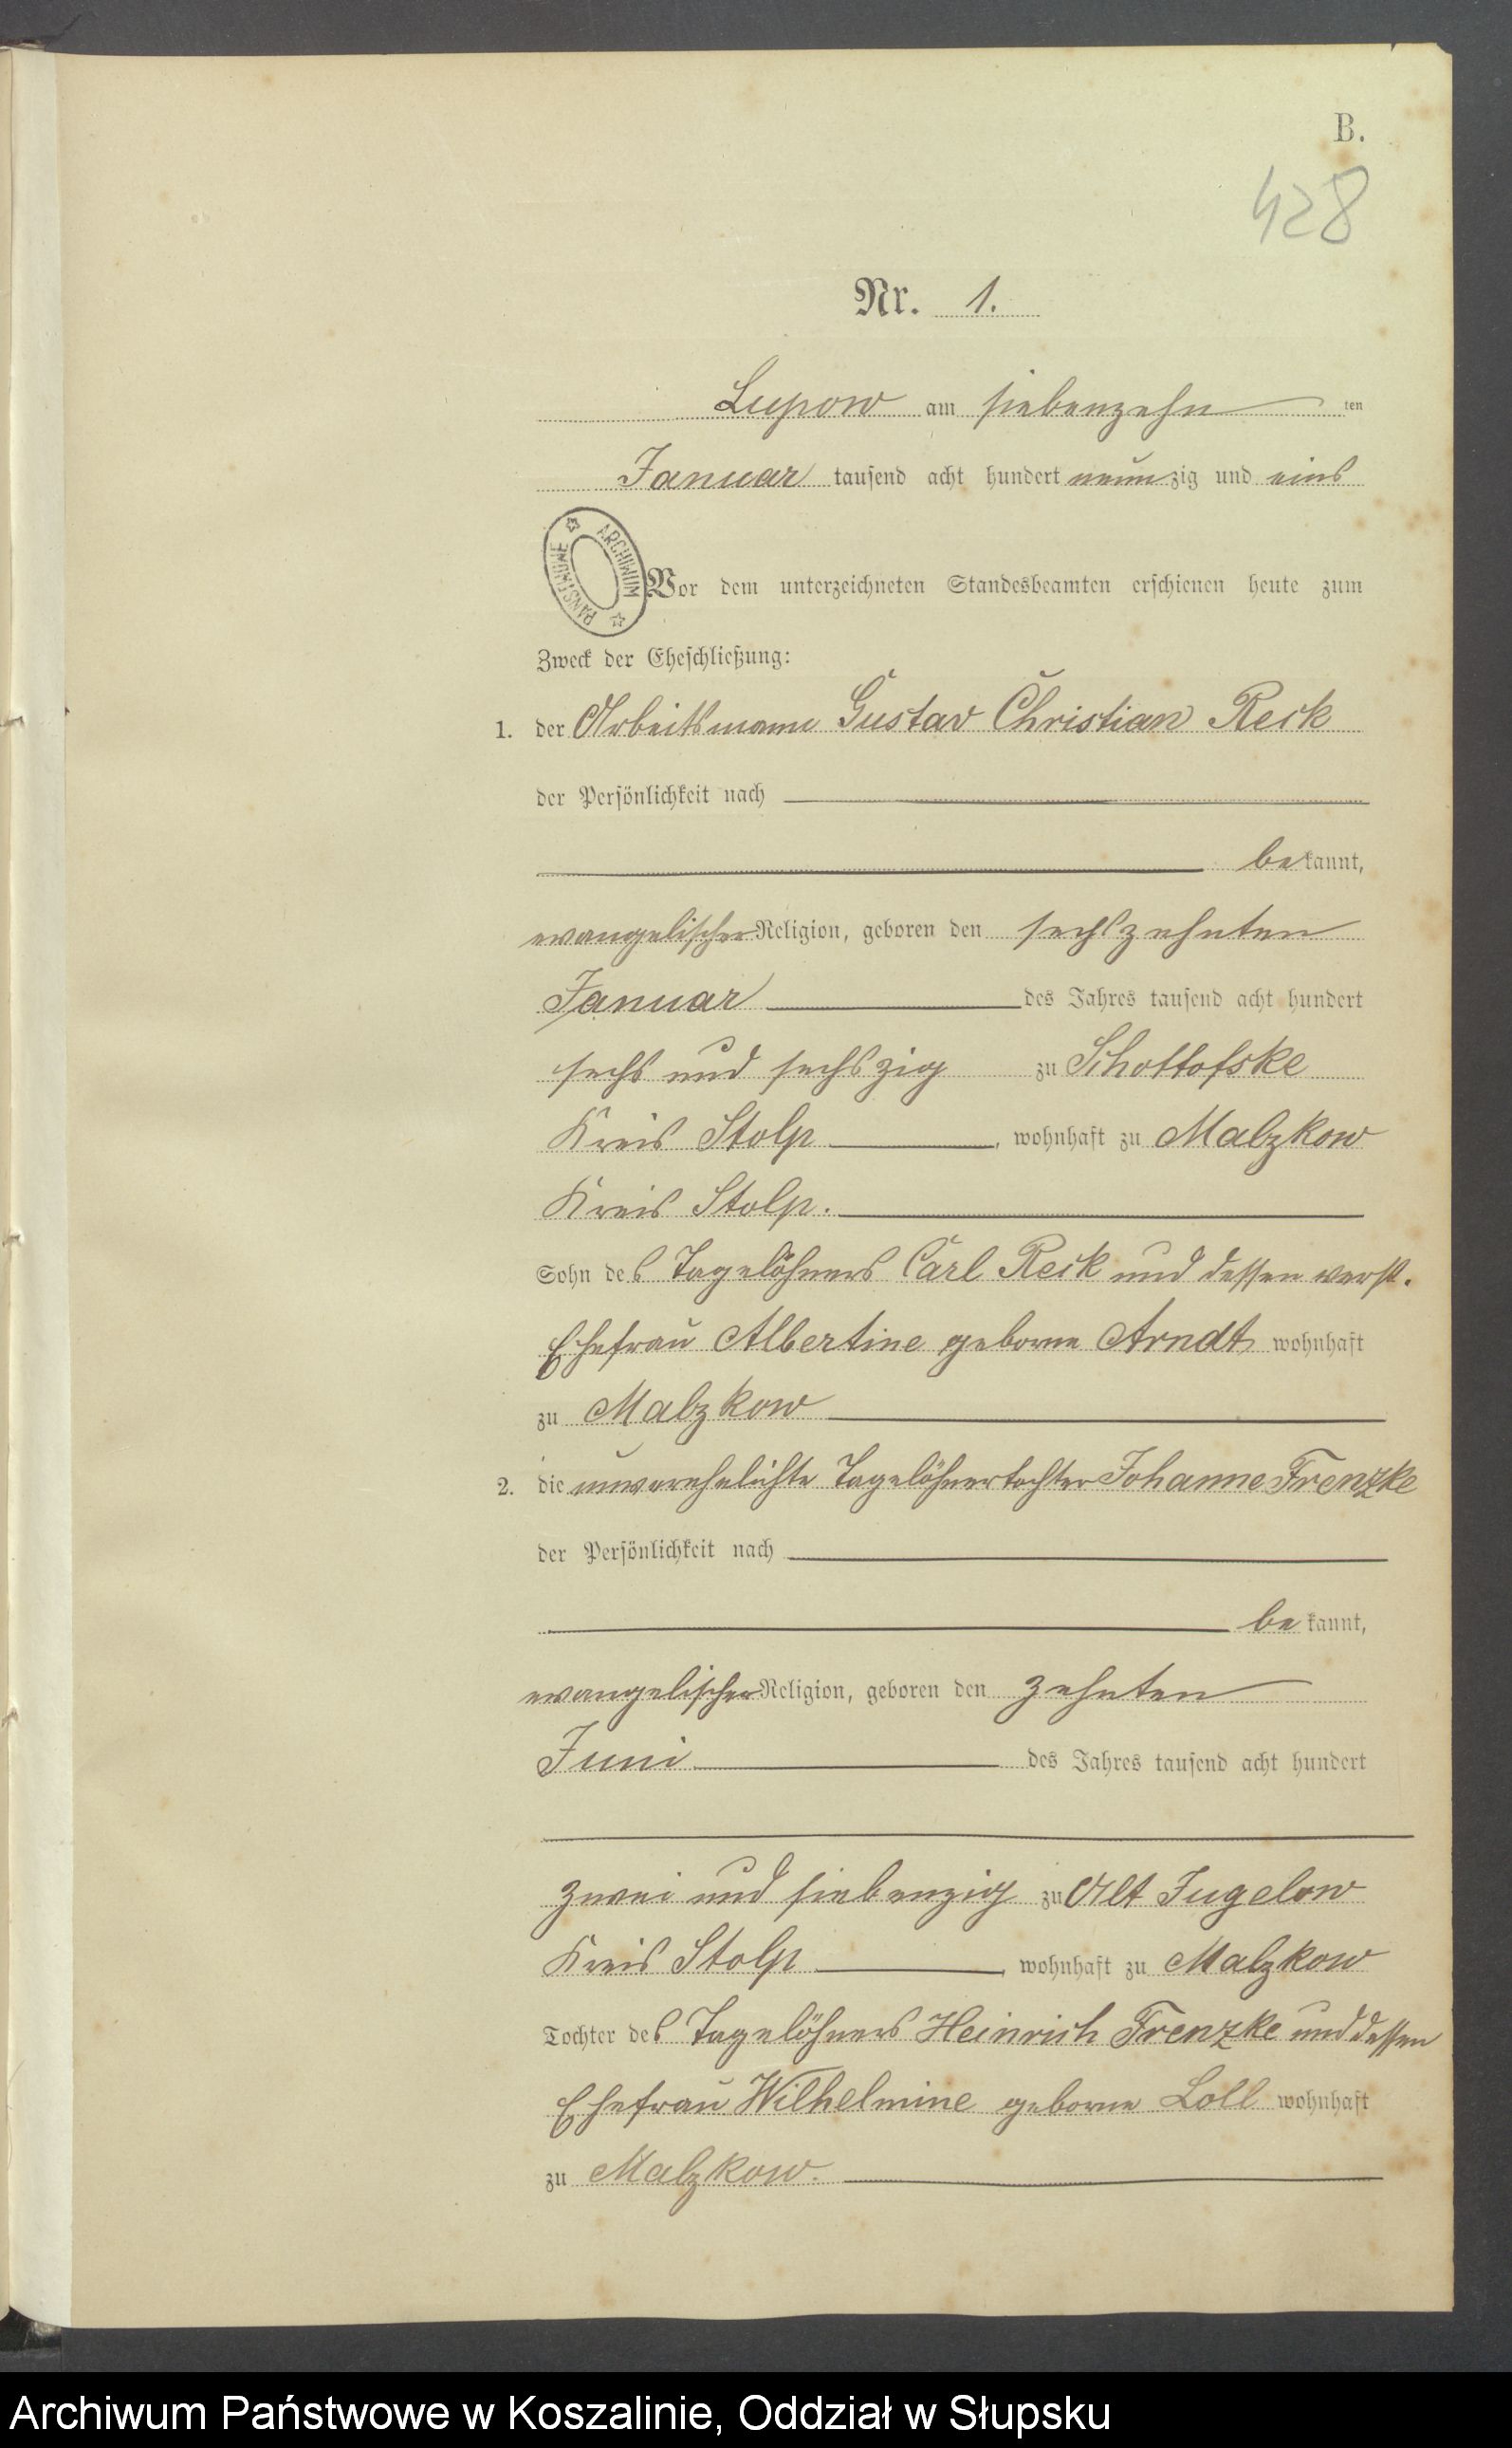 B.
428
Nr. 1.
Lupow am siebenzehn ten
Januar tausend acht hundert neunzig und eins
ARCHIWUM PAŃSTWOWE
Vor dem unterzeichneten Standesbeamten erschienen heute zum
Zweck der Eheschließung:
1. der Arbeitsmann Gustav Christian Reck
der Persönlichkeit nach
bekannt,
evangelischer Religion, geboren den sechszehnten
Januar des Jahres tausend acht hundert
sechs und sechszig zu Schottofske
Kreis Stolp, wohnhaft zu Malzkow
Kreis Stolp.
Sohn des Tagelöhners Carl Reck und dessen verst.
Ehefrau Albertine geborne Arndt wohnhaft
zu Malzkow
2. die unverehelichte Tagelöhnertochter Johanne Frenzke
der Persönlichkeit nach
bekannt,
evangelischer Religion, geboren den zehnten
Juni des Jahres tausend acht hundert
zwei und siebenzig zu Alt Jugelow
Kreis Stolp, wohnhaft zu Malzkow
Tochter des Tagelöhners Heinrich Frenzke und dessen
Ehefrau Wilhelmine geborne Loll wohnhaft
zu Malzkow.
Archiwum Państwowe w Koszalinie, Oddział w Słupsku